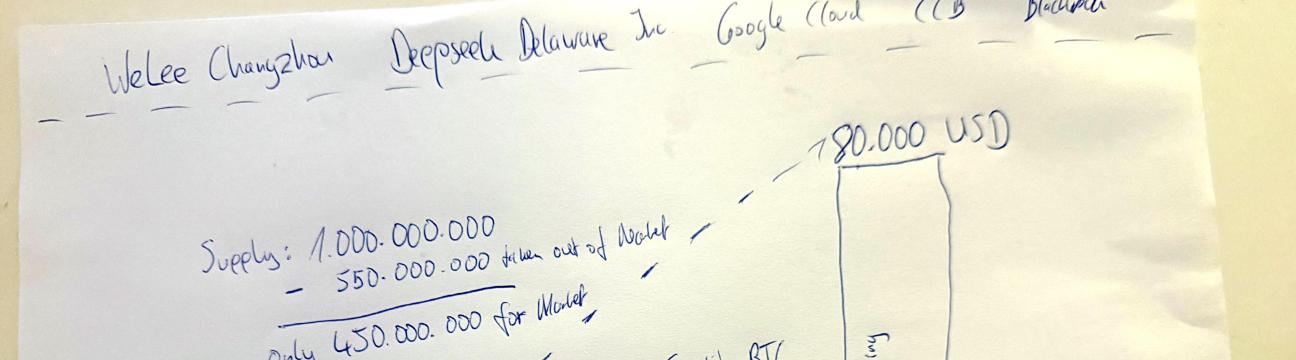 WeLee Changzhou Deepseek Delaware Inc. Google Cloud CCB
180.000 USD
Supply: 1.000.000.000
- 550.000.000 taken out of Market
Only 450.000.000 for Market
BTC